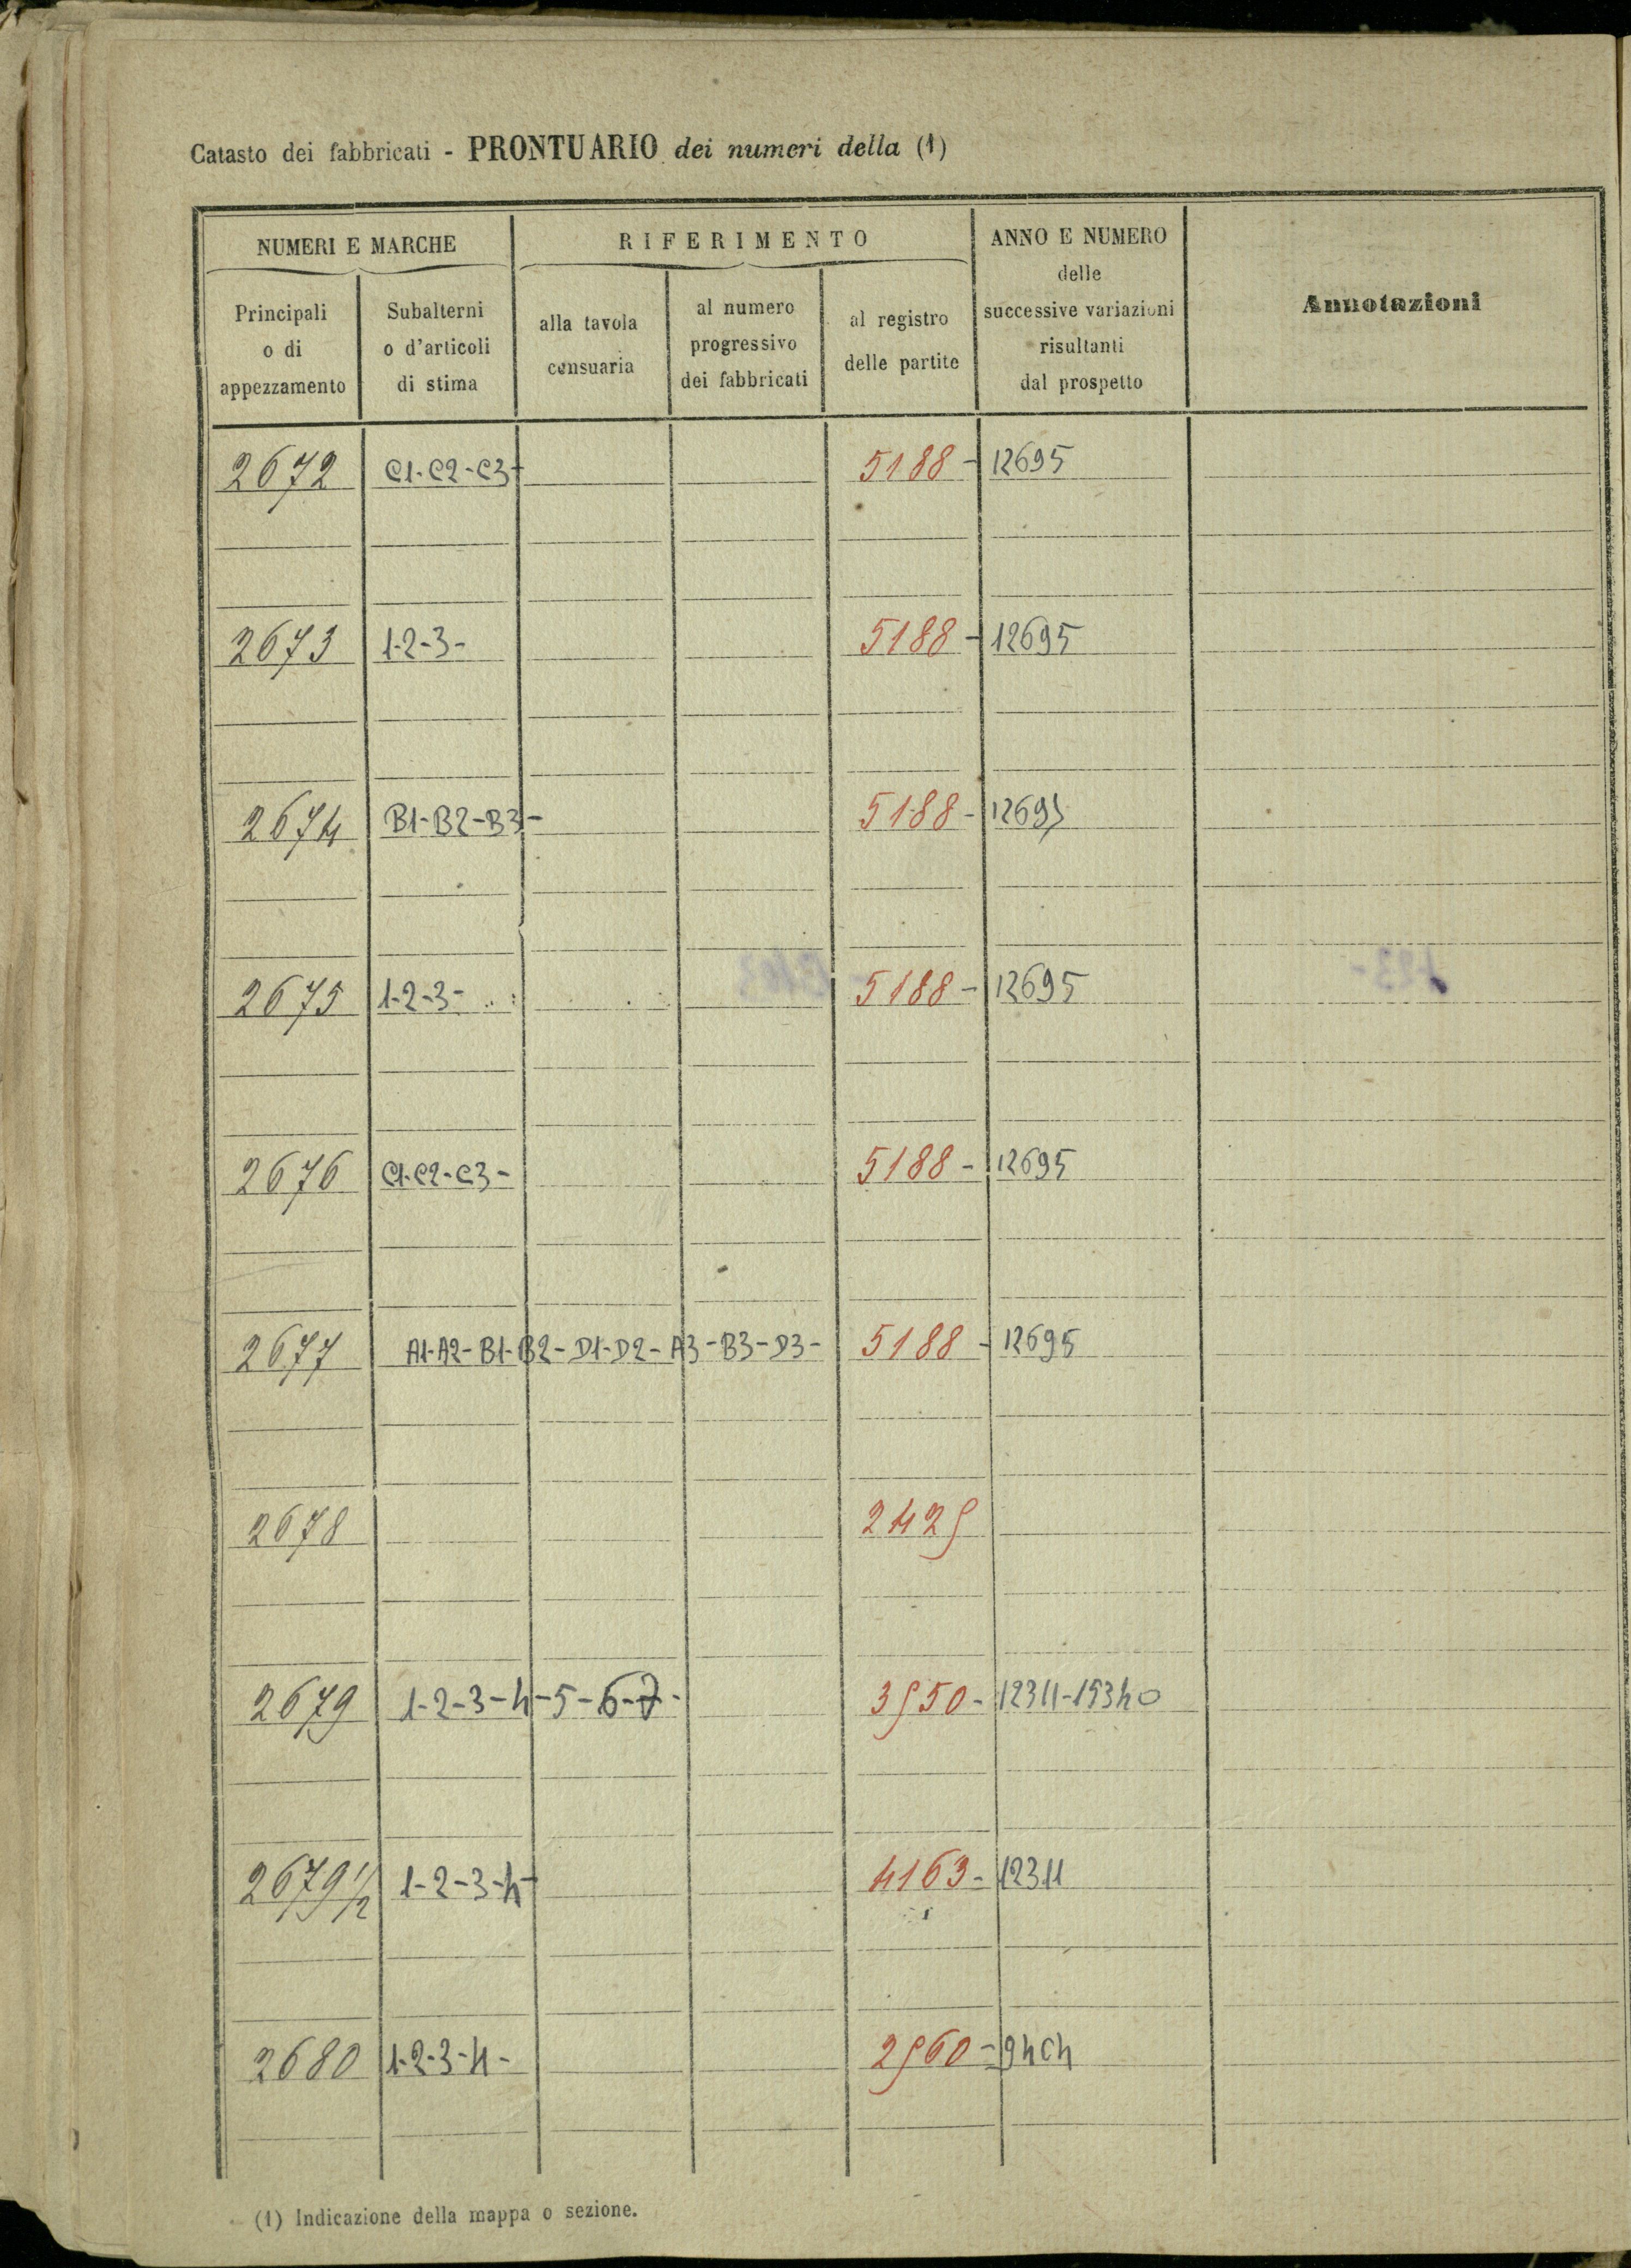 Catasto dei fabbricati - PRONTUARIO dei numeri della (1)
NUMERI E MARCHE
RIFERIMENTO
ANNO E NUMERO
delle
successive variazioni
risultanti
dal prospetto
Annotazioni
Principali
o di
appezzamento
Subalterni
o d'articoli
di stima
alla tavola
censuaria
al numero
progressivo
dei fabbricati
al registro
delle partite
2672 C1-C2-C3- 5188 - 12695
2673 1-2-3- 5188 - 12695
2674 B1-B2-B3- 5188 - 12695
2675 1-2-3- 5188 - 12695
2676 C1-C2-C3- 5188 - 12695
2677 A1-A2-B1-B2-D1-D2-A3-B3-D3- 5188 - 12695
2678 2425
2679 1-2-3-4-5-6-7- 3550 - 12311-15340
2679 1/2 1-2-3-4- 4163 - 12311
2680 1-2-3-4- 2560 - 9404
(1) Indicazione della mappa o sezione.